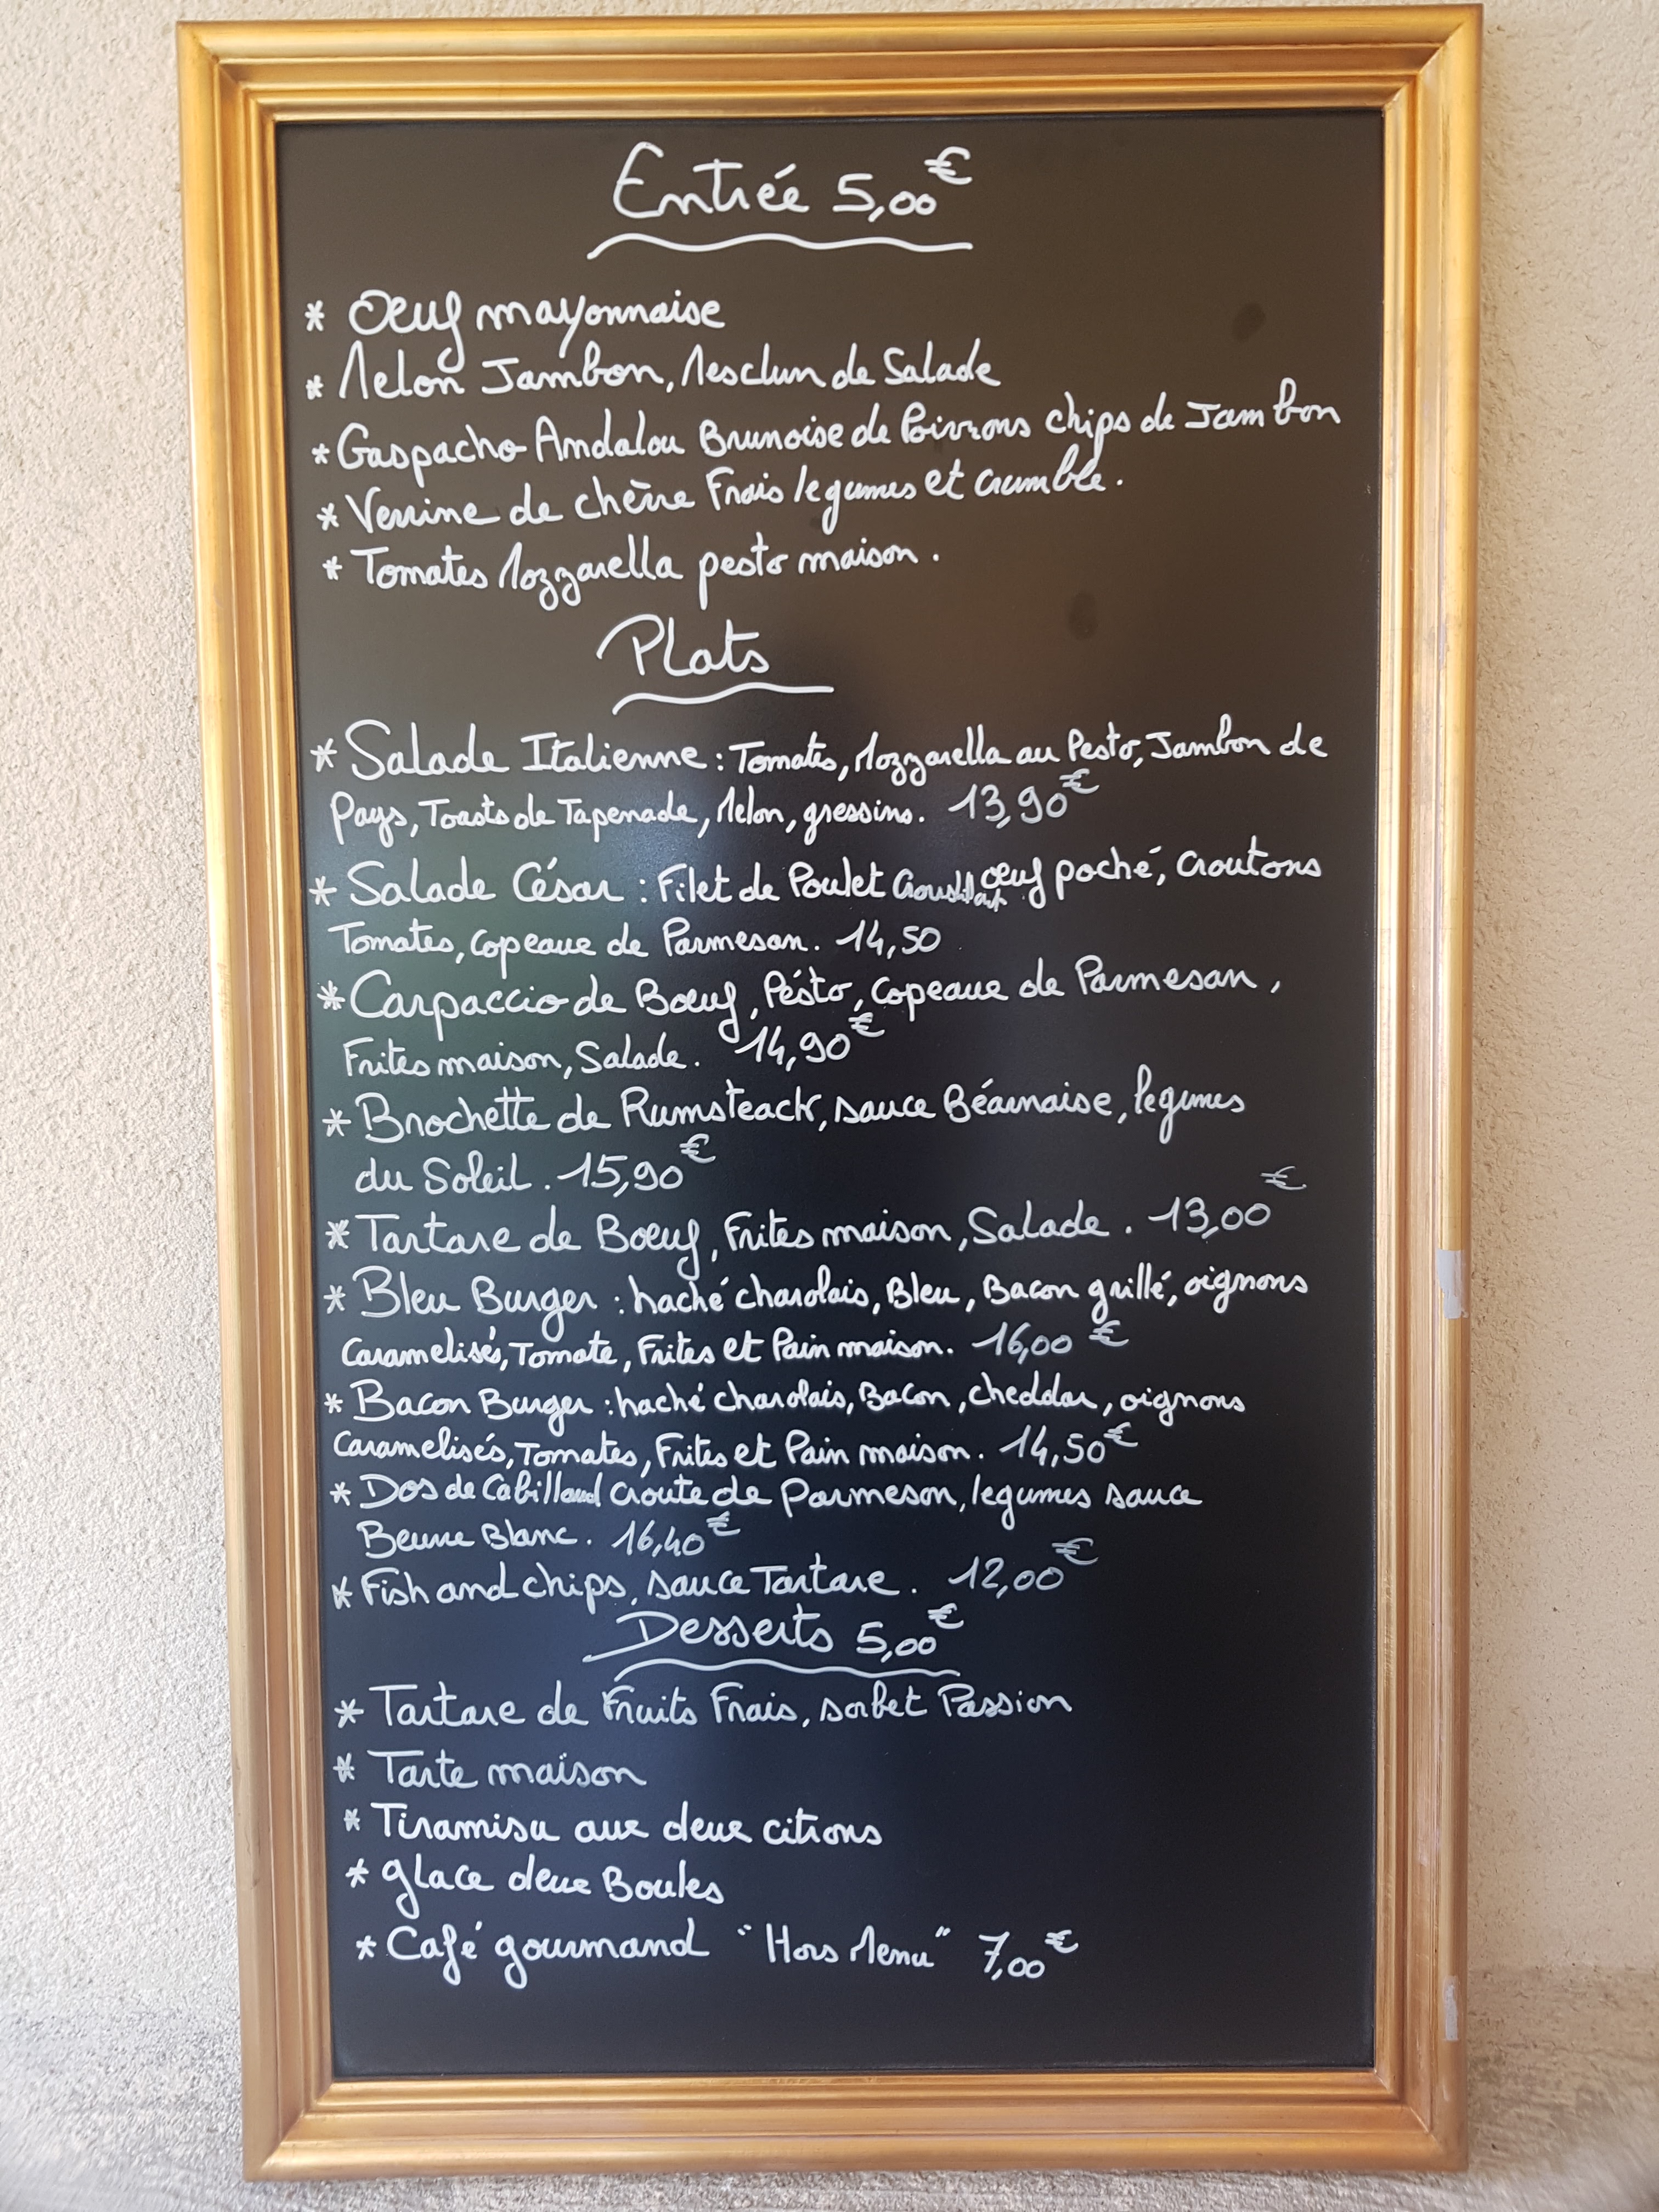 Entrée 5,00€
* Oeuf mayonnaise
* Melon Jambon, Mesclun de Salade
* Gaspacho Andalou Brunoise de Poivrons chips de Jambon
* Verrine de chèvre Frais legumes et crumble.
* Tomates Mozzarella pesto maison.
Plats
* Salade Italienne : Tomates, Mozzarella au Pesto, Jambon de
Pays, Toasts de Tapenade, Melon, gressins. 13,90€
* Salade César : Filet de Poulet Croustillant oeuf poché, croutons
Tomates, copeaux de Parmesan. 14,50
* Carpaccio de Boeuf, Pésto, copeaux de Parmesan,
Frites maison, Salade. 14,90€
* Brochette de Rumsteack, sauce Béarnaise, legumes
du Soleil. 15,90€
* Tartare de Boeuf, Frites maison, Salade. 13,00€
* Bleu Burger : haché charolais, Bleu, Bacon grillé, oignons
Caramelisés, Tomate, Frites et Pain maison. 16,00 €
* Bacon Burger : haché charolais, Bacon, cheddar, oignons
Caramelisés, Tomates, Frites et Pain maison. 14,50€
* Dos de Cabillaud croute de parmeson, legumes sauce
Beurre Blanc. 16,40€
* Fish and chips, sauce Tartare. 12,00€
Desserts 5,00€
* Tartare de Fruits Frais, sorbet Passion
* Tarte maison
* Tiramisu aux deux citrons
* glace deux Boules
* Café gourmand "Hors Menu" 7,00€